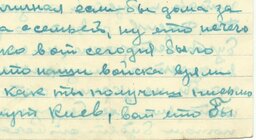 личная если бы дома за
а осенью, ну это нечего
ко вот сегодня было
что наши войска взяли
как ты получишь письмо
мут Киев, вот это бы